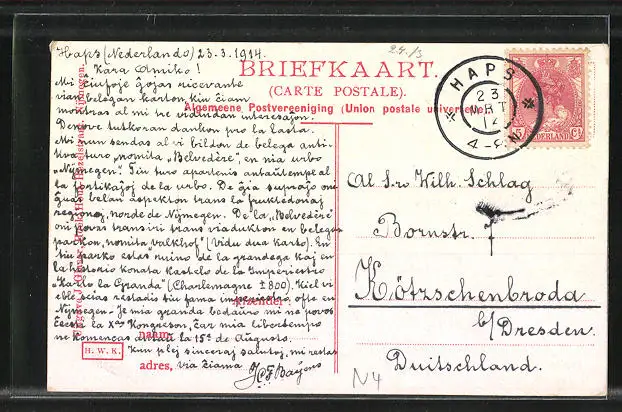 Haps (Nederlando) 23.3.1914.
24/3
Kara Amiko!
Mi ĉiufoje ĝojas ricevante
vian belegan karton, kiu ĉiam
montras al mi tre vidindan interesaĵon.
Denove tutkoran dankon pro la lasta.
Mi nun sendas al vi bildon de belega anti-
kva turo, nomita „Belvedère", en nia urbo
„Nijmegen". Tiu turo apartenis antaŭtempe al
la fortikaĵoj de la urbo. De ĝia supraĵo oni
ĝuas belan aspekton trans la fruktodonaj
regionoj, norde de Nijmegen. De la „Belvedère"
oni povas transiri trans viadukton en belegan
parkon, nomita „Valkhof" (Vidu dua karto). En
tiu parko estas ruino de la grandega kaj en
la historio konata kastelo de la Imperiestro
„Karlo la Granda" (Charlemagne ± 800). Kiel vi
eble scias restadis tiu fama imperiestro ofte en
Nijmegen. Je mia granda bedaŭro mi ne povos
ĉeesti la Xan Kongreson, ĉar mia libertempo
ne komencas antaŭ la 15a de Aŭgusto.
Kun plej sinceraj salutoj, mi restas
via ĉiama
J.C.F. Baijens
BRIEFKAART.
(CARTE POSTALE).
Algemeene Postvereeniging (Union postale universelle).
HAPS
23
MRT
14
4-8N
NEDERLAND
5 Ct
Al S-ro Wilh. Schlag
Bornstr. 7
Kötzschenbroda
b/Dresden.
Duitschland.
Afzender:
naam,
adres,
H. W. K.
N4